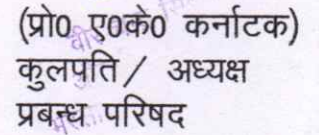 (प्रो0 ए0के0 कर्नाटक)
कुलपति / अध्यक्ष
प्रबन्ध परिषद